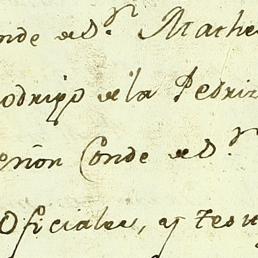 nde de S.r Mathe
odrigo de la Pedriz
eñor Conde de S.r
Oficiales, y tes